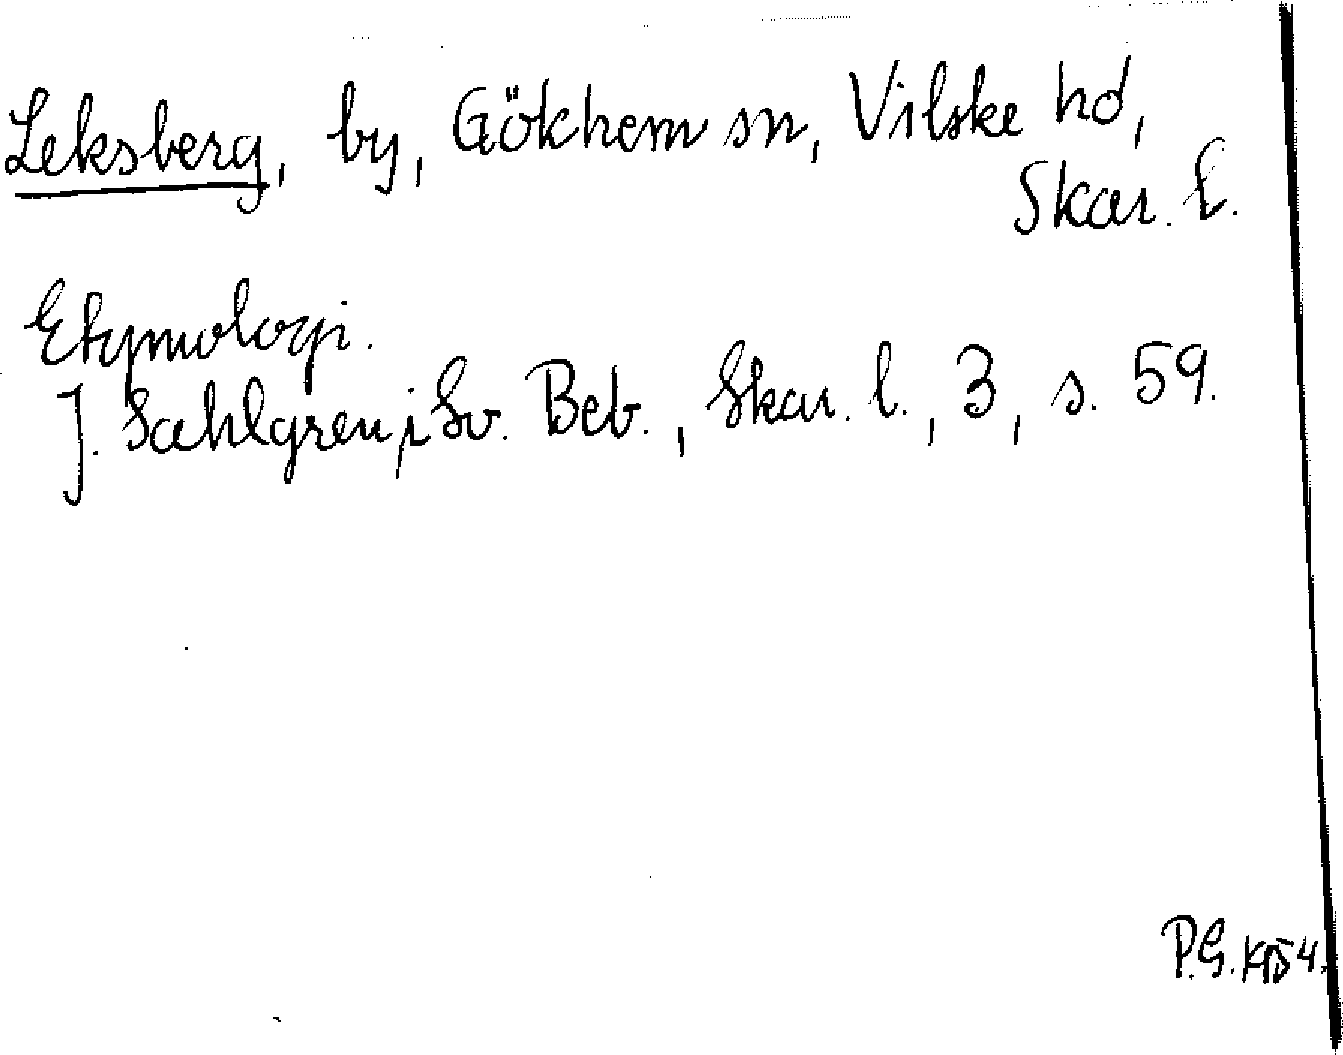 Leksberg, by, Gökhem sn, Vilske hd,
Skar. l.
Etymologi.
J. Sahlgren i Sv. Beb., Skar. l., 3, s. 59.
P.G. 1954.